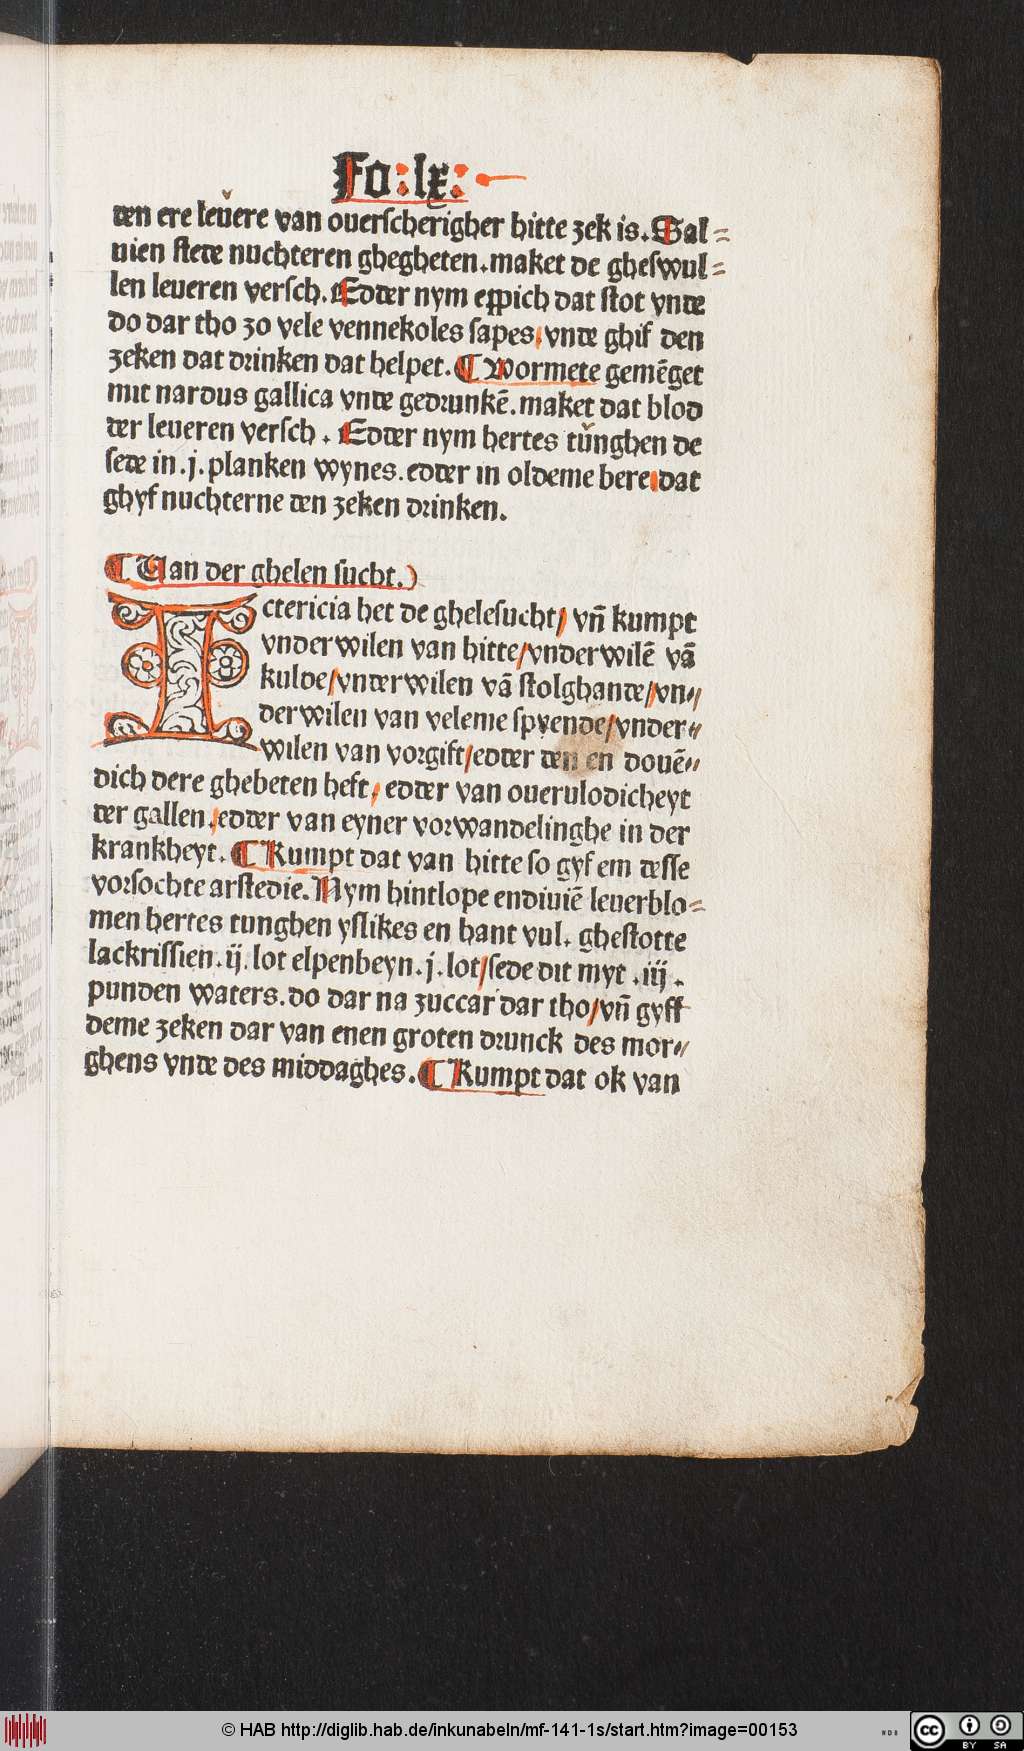 Fo:lx:
den ere leuere van ouerscherigher hitte zek is. Sal=
uien stede nuchteren ghegheten. maket de gheswul=
len leueren versch. Edder nym eppich dat stot vnde
do dar tho zo vele vennekoles sapes, vnde ghif den
zeken dat drinken dat helpet. ¶ Wormete gemēget
mit nardus gallica vnde gedrunkē. maket dat blod
der leueren versch. Edder nym hertes tůnghen de
sede in .j. planken wynes. edder in oldeme bere dat
ghyf nuchterne den zeken drinken.
¶ Uan der ghelen sucht.)
Ictericia het de ghelesucht/ vn̄ kumpt
vnderwilen van hitte/vnderwilē vā
kulde/vnderwilen vā stolghande/vn=
derwilen van veleme spyende/vnder=
wilen van vorgift/edder den en douē=
dich dere ghebeten heft, edder van ouerulodicheyt
der gallen,edder van eyner vorwandelinghe in der
krankheyt. ¶ Kumpt dat van hitte so gyf em desse
vorsochte arstedie. Nym hintlope endiuiē leuerblo=
men hertes tunghen yslikes en hant vul. ghestotte
lackrissien. ij. lot elpenbeyn. j. lot/sede dit myt .iij.
punden waters. do dar na zuccar dar tho/vn̄ gyff
deme zeken dar van enen groten drunck des mor=
ghens vnde des middaghes. ¶ Kumpt dat ok van
© HAB http://diglib.hab.de/inkunabeln/mf-141-1s/start.htm?image=00153
cc BY SA